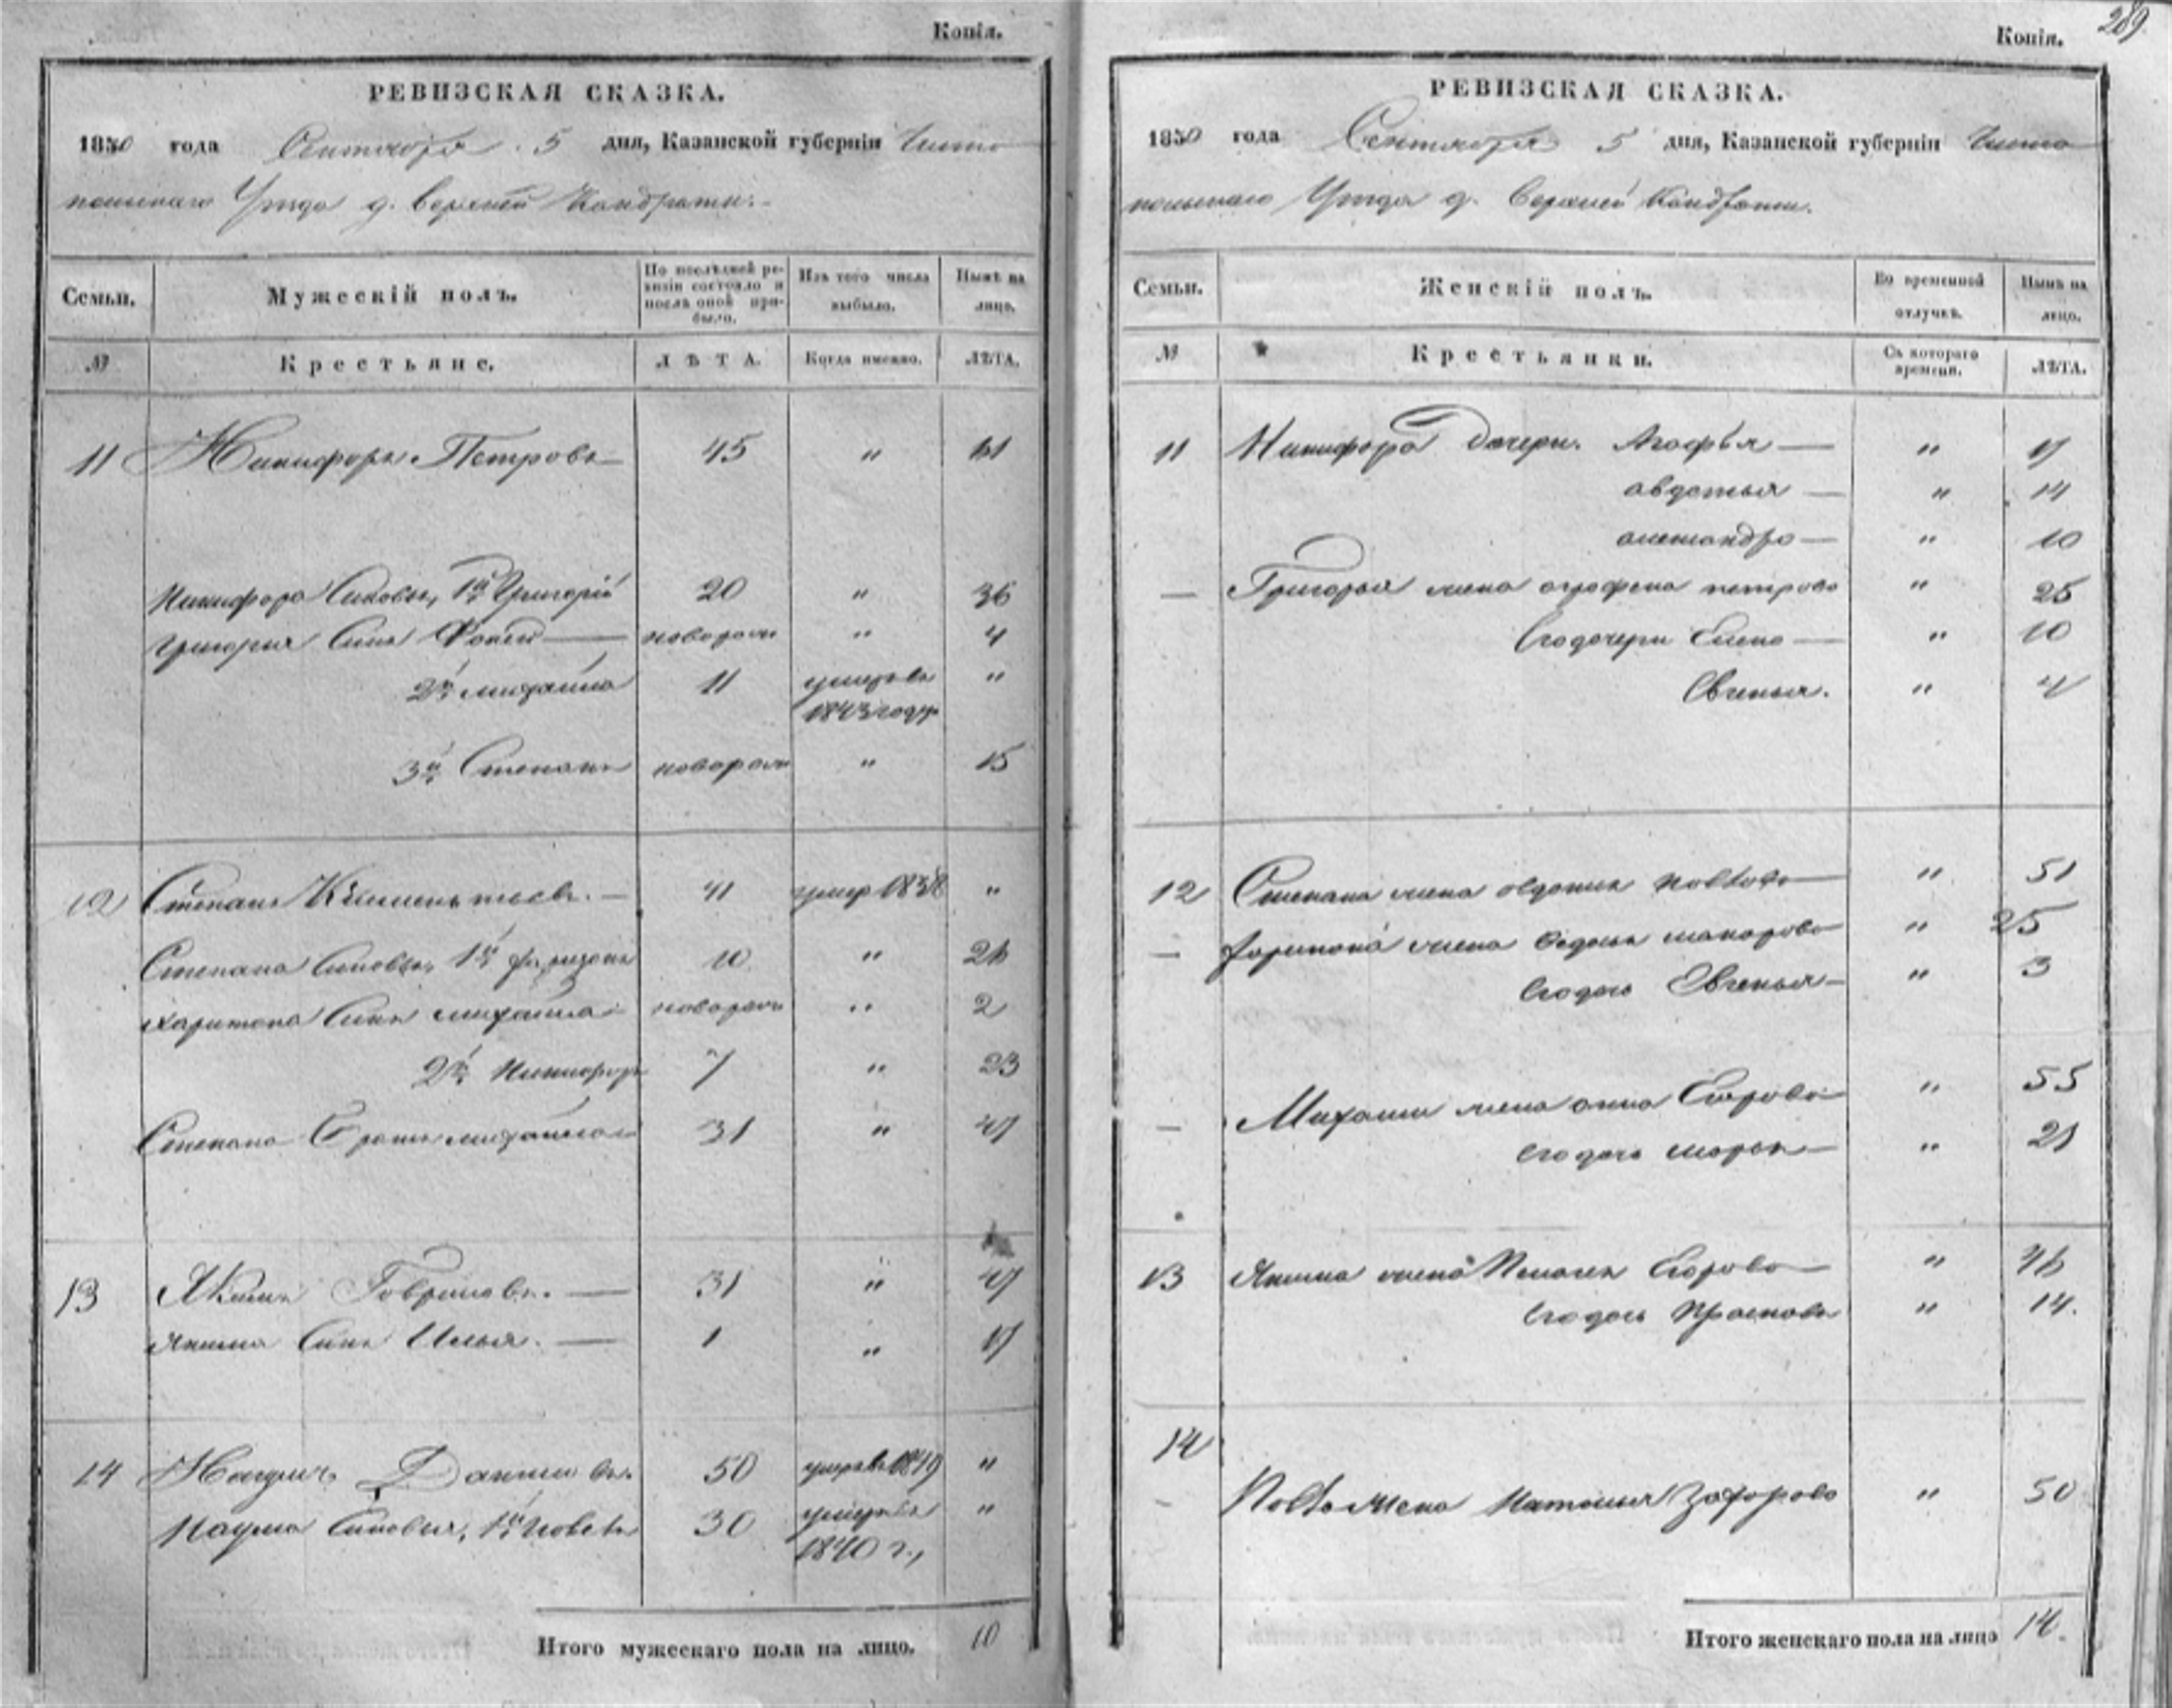 Копія.
РЕВИЗСКАЯ СКАЗКА.
1850 года Сентября 5 дня, Казанской губерніи Чисто
польскаго Уѣзда д. Верхней Кондраты.
Семьи. Мужескій полъ. По послѣдней ревизіи состояло и послѣ оной прибыло. Изъ того числа выбыло. Нынѣ на лицо.
№ Крестьяне. ЛѢТА. Когда именно. ЛѢТА.
11 Никифоръ Петровъ 45 " 61
Никифора Сыновья, 1й Григорій 20 " 36
Григорья Сынъ Фокей новорож " 4
2й михайла 11 умеръ въ "
1843 году
3й Степанъ новорож " 15
12 Степанъ 41 умер 1838 "
Степана Сыновья, 1й 10 " 26
Харитона Сынъ михайла новорож " 2
2й Никифоръ 7 " 23
Степана Братъ михайла 31 " 47
13 Якимъ Гавриловъ. 31 " 47
Якима Сынъ Илья. 1 " 17
14 Наумъ Даниловъ. 50 умеръ въ 1849 "
Наума Сыновья, 1й Павелъ 30 умеръ въ "
1840 г.,
Итого мужескаго пола на лицо. 10
289
Копія.
РЕВИЗСКАЯ СКАЗКА.
1850 года Сентября 5 дня, Казанской губерніи Чисто
польскаго Уѣзда д. Верхней Кондраты.
Семьи. Женскій полъ. Во временной отлучкѣ. Нынѣ на лицо.
№ Крестьянки. Съ котораго времени. ЛѢТА.
11 Никифора дочери. Агофья " 17
авдотья " 14
александра " 10
Григорья жена аграфена петрова " 25
Его дочери Елена " 10
Евгенья. " 4
12 Степана жена авдотья Павлова " 51
Харитона жена Федосья макарова " 25
Его дочь Евгенья " 3
Михайлы жена анна Егорова " 55
Его дочь марья " 21
13 Якима жена Пелагея Егорова " 46
Его дочь Прасковья " 14.
14
Павла жена Наталья Захарова " 50
Итого женскаго пола на лицо 14.